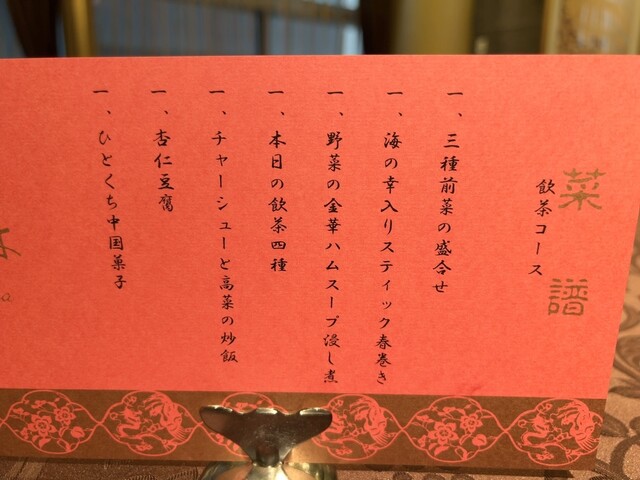 菜譜
飲茶コース
一、三種前菜の盛合せ
一、海の幸入りスティック春巻き
一、野菜の金華ハムスープ浸し煮
一、本日の飲茶四種
一、チャーシューと高菜の炒飯
一、杏仁豆腐
一、ひとくち中国菓子